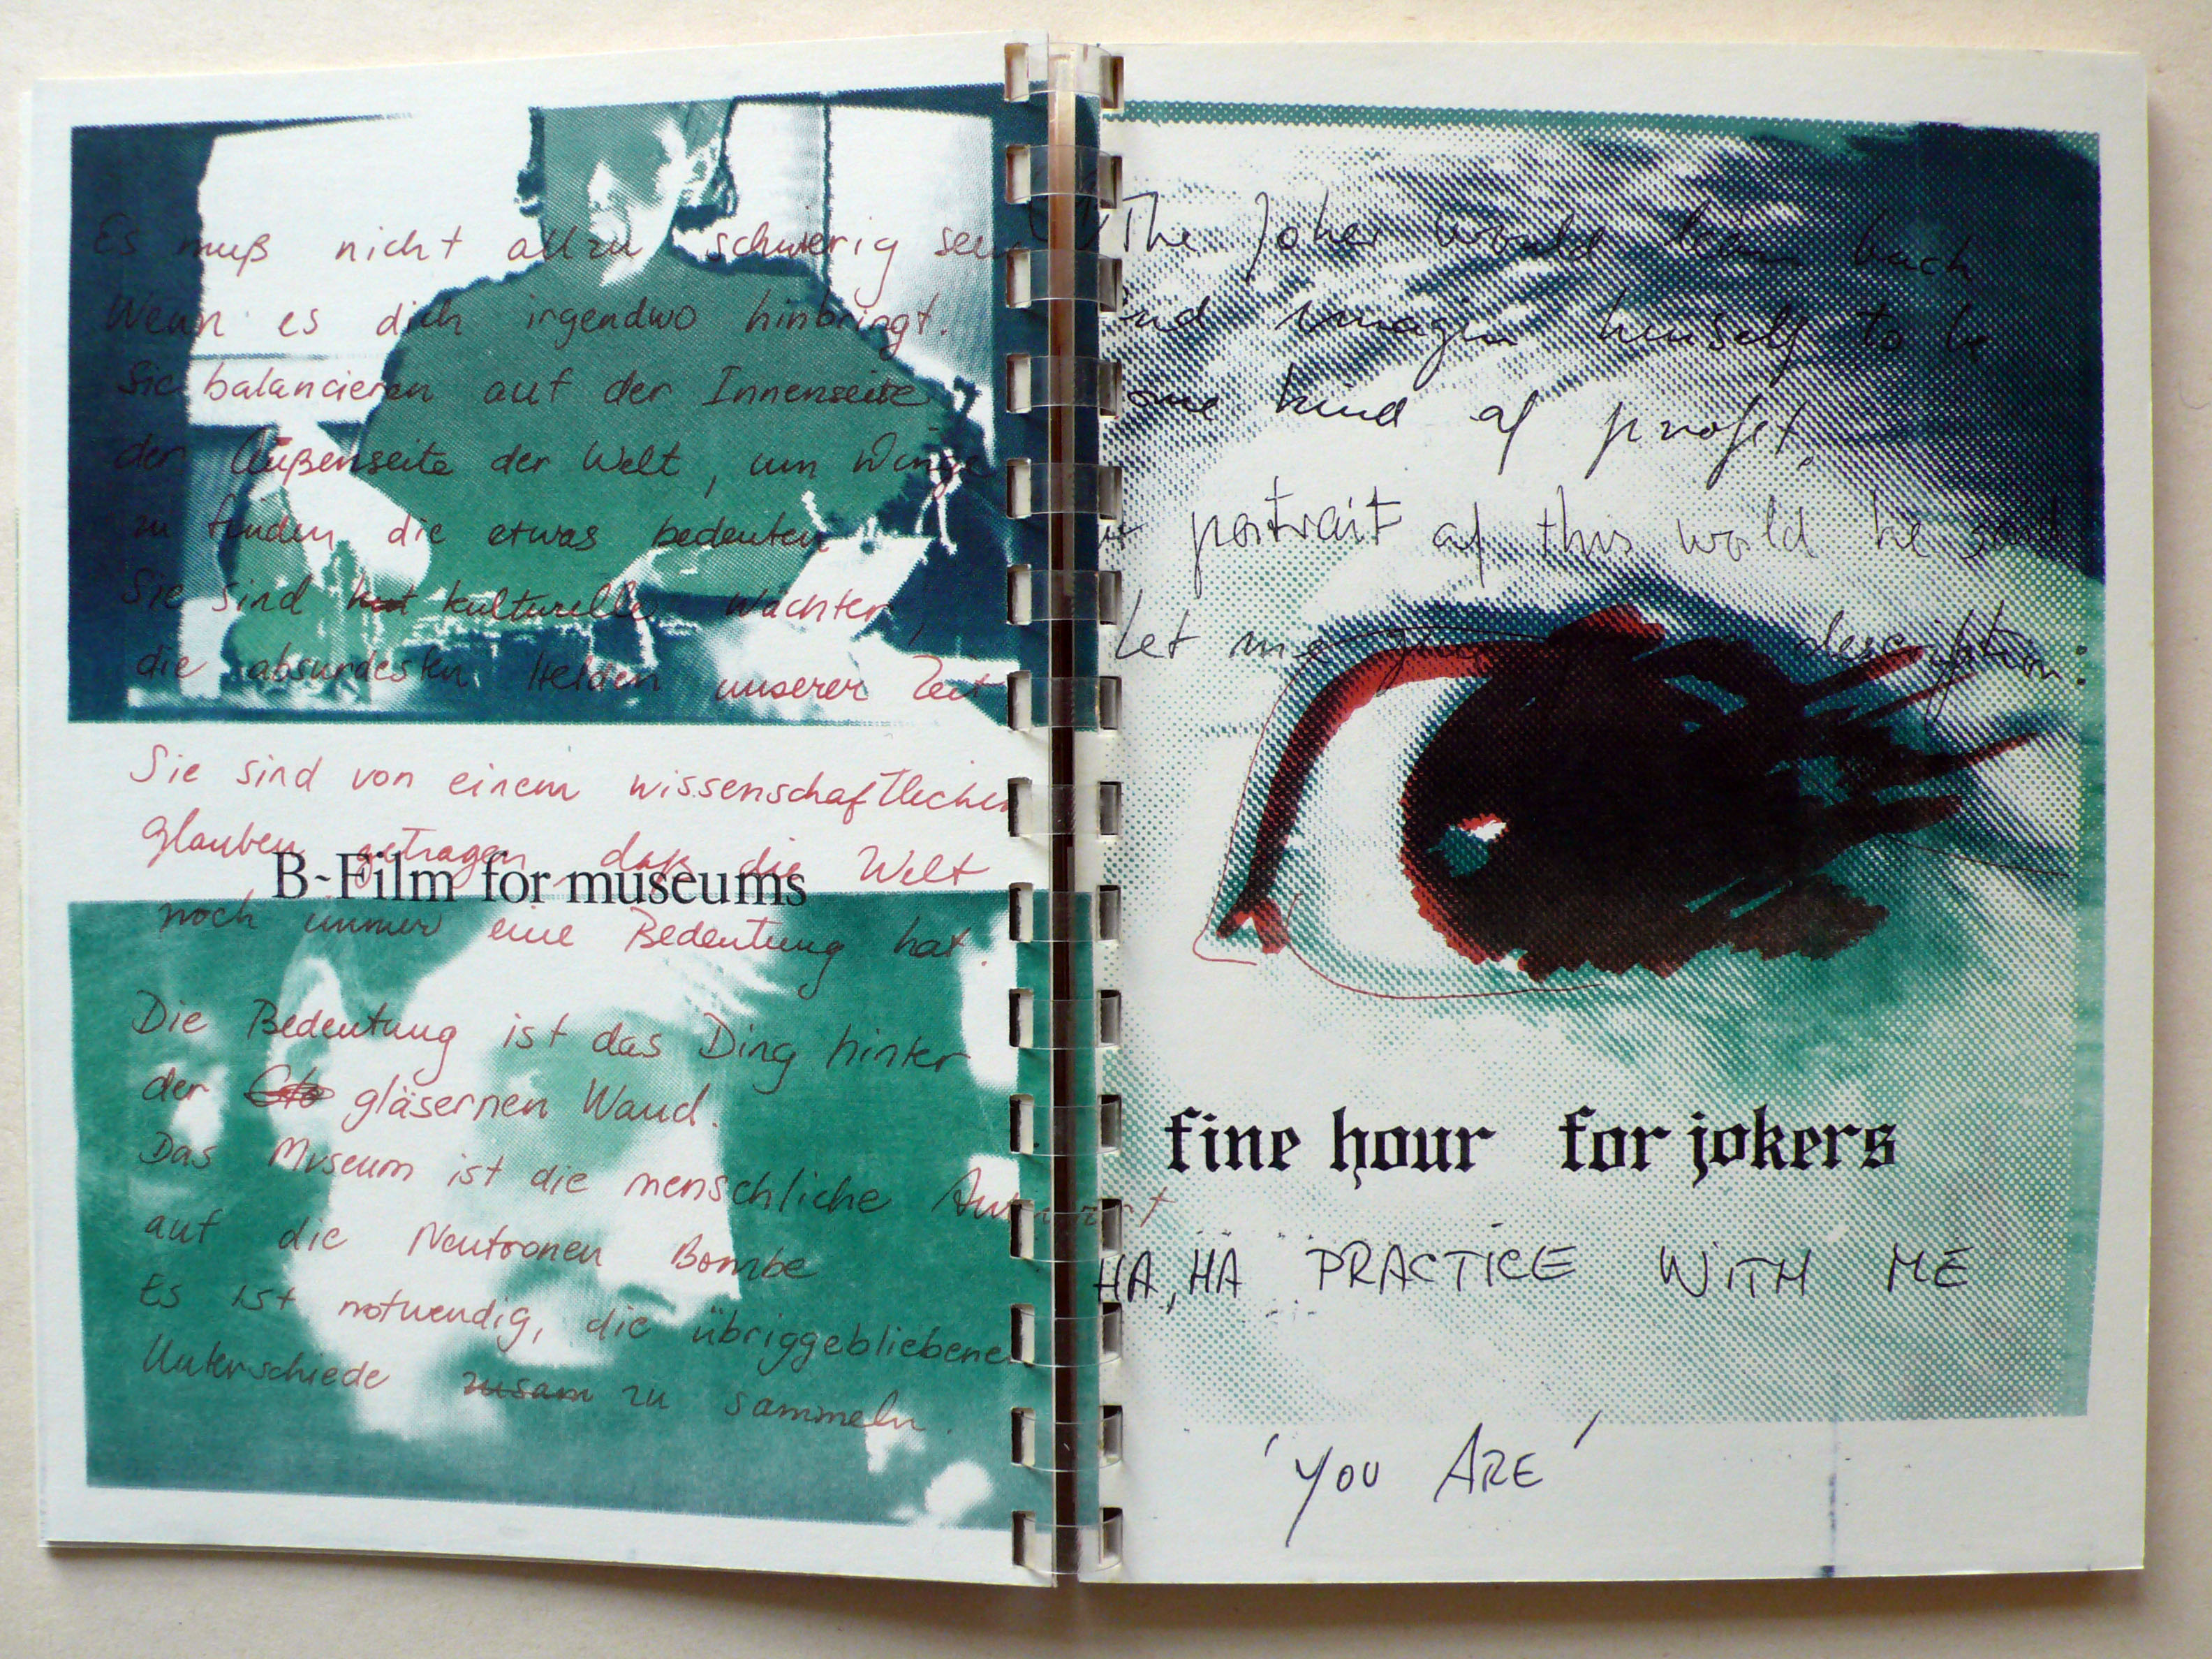 Es muß nicht allzu schwierig sein
Wenn es dich irgendwo hinbringt.
Sie balancieren auf der Innenseite
der Außenseite der Welt, um Dinge
zu finden die etwas bedeuten
Sie sind kulturelle Wächter,
die absurdesten Helden unserer Zeit
Sie sind von einem wissenschaftlichen
Glauben getragen, daß die Welt
B-Film for museums
noch immer eine Bedeutung hat.
Die Bedeutung ist das Ding hinter
der gläsernen Wand.
Das Museum ist die menschliche Antwort
auf die Neutronen Bombe
Es ist notwendig, die übriggebliebenen
Unterschiede zusam zu sammeln.
The Joker would lean back
and imagin himself to be
some kind of profet.
portrait of this world he said
Let me description:
fine hour for jokers
HA, HA PRACTICE WITH ME
'YOU ARE'